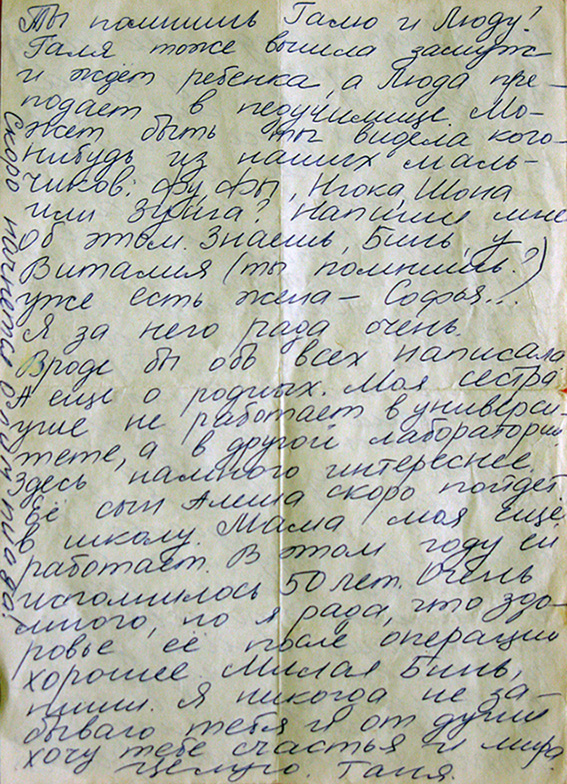 Ты помнишь Галю и Люду?
Галя тоже вышла замуж
и ждёт ребенка, а Люда пре-
подает в педучилище. Мо-
жет быть ты видела кого-
нибудь из наших маль-
чиков: Фу, Фы, Нгока, Шона
или Зунга? Напиши мне
об этом. Знаешь, Бинь, у
Виталия (ты помнишь?)
уже есть жена – Софья...
Я за него рада очень.
Вроде бы обо всех написала
А еще о родных. Моя сестра
уже не работает в универси-
тете, а в другой лаборатории
Здесь намного интереснее.
Её сын Алеша скоро пойдет
в школу. Мама моя ещё
работает. В этом году ей
исполнилось 50 лет. Очень
много, но я рада, что здо-
ровье её после операции
хорошее. Милая Бинь,
пиши. Я никогда не за-
бываю тебя и от души
хочу тебе счастья и мира
Целую. Таня.
Скоро начнется